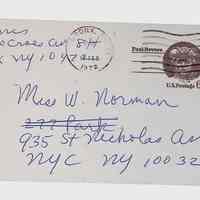 Croes Av 8H
NY 1047
1972
Paul Revere
U.S. Postage 6
Miss W. Norman
277 Park
935 St Nicholas Av
NYC NY 10032